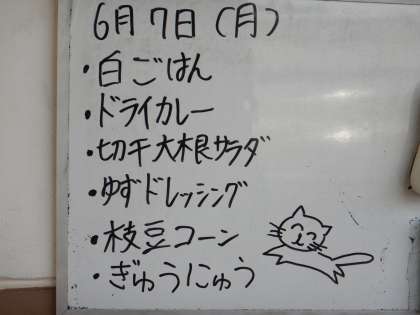 6月7日(月)
・白ごはん
・ドライカレー
・切干大根サラダ
・ゆずドレッシング
・枝豆コーン
・ぎゅうにゅう